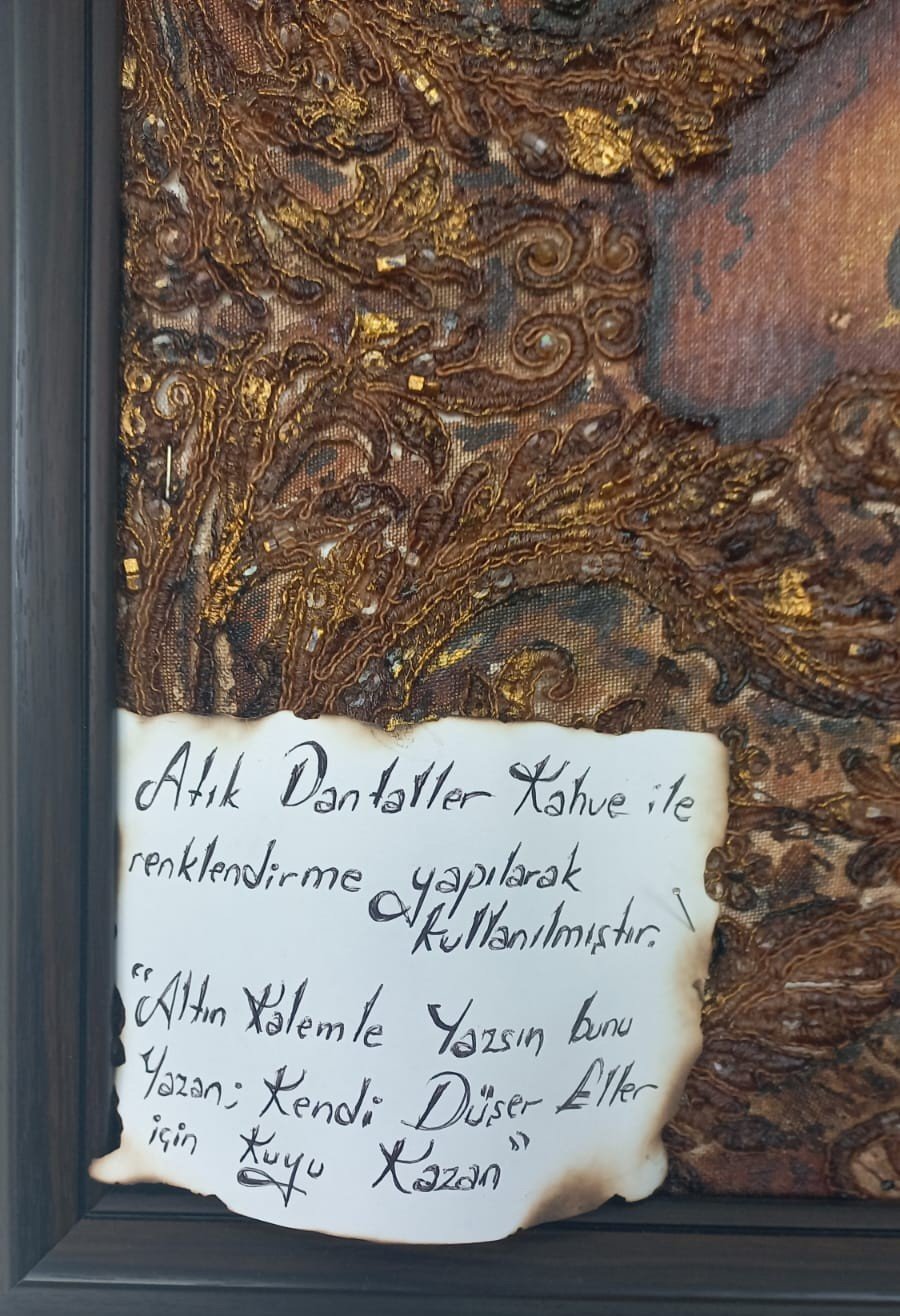 Atık Dantaller Kahve ile
renklendirme yapılarak
kullanılmıştır.
"Altın Kalemle Yazsın bunu
Yazan; Kendi Düşer Eller
için Kuyu Kazan"